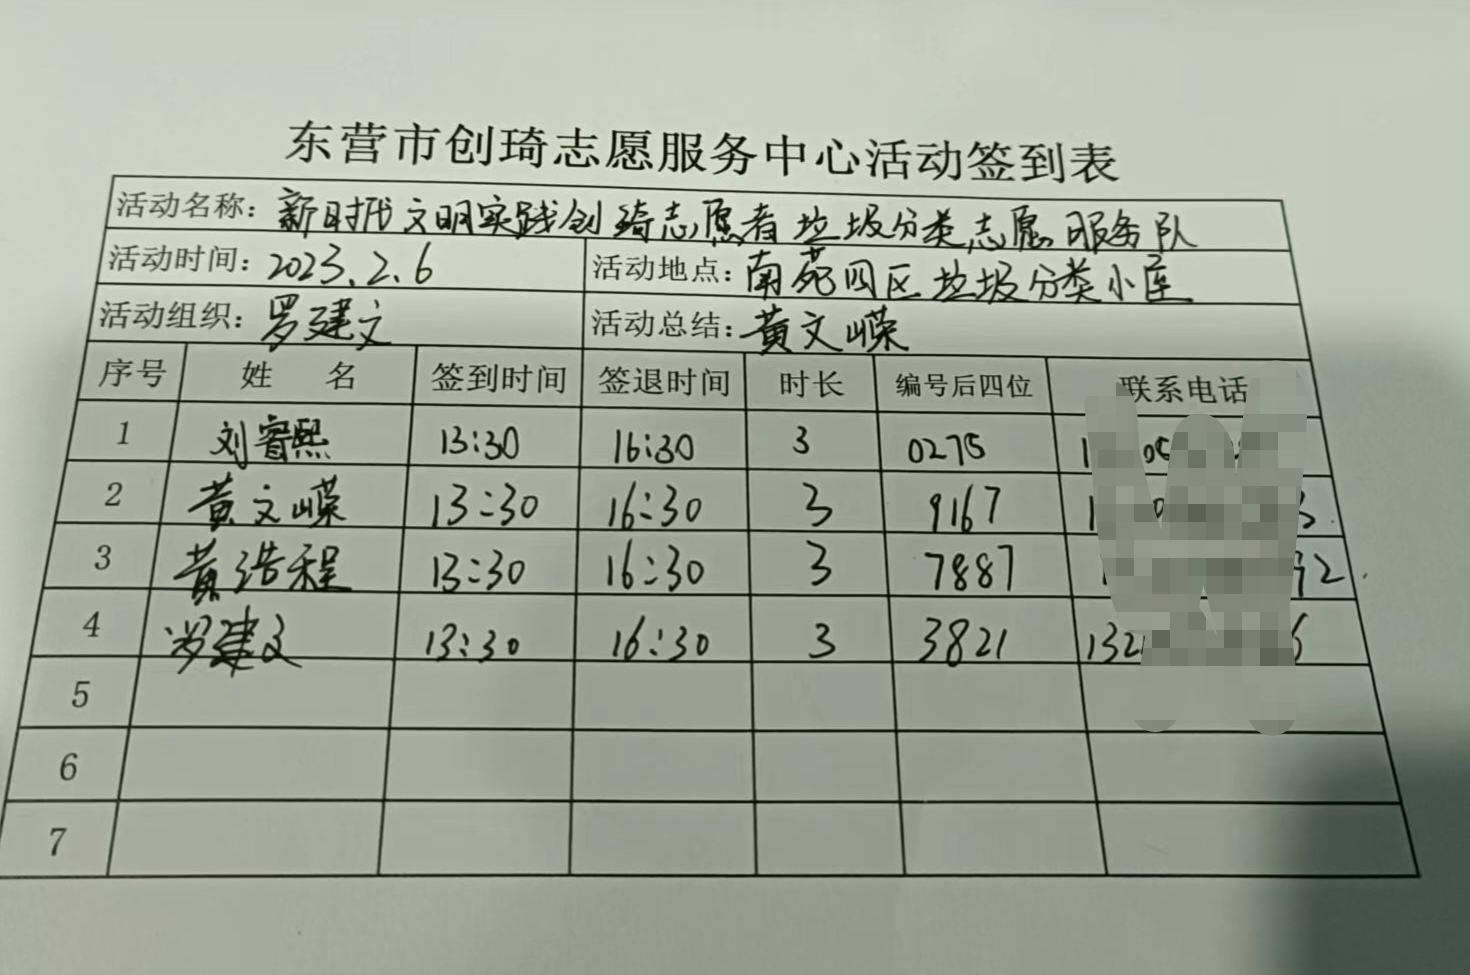 东营市创琦志愿服务中心活动签到表
活动名称：新时代文明实践创琦志愿者垃圾分类志愿服务队
活动时间：2023.2.6 活动地点：南苑四区垃圾分类小屋
活动组织：罗建文 活动总结：黄文嵘
序号 姓 名 签到时间 签退时间 时长 编号后四位 联系电话
1 刘睿熙 13:30 16:30 3 0275
2 黄文嵘 13:30 16:30 3 9167
3 黄浩程 13:30 16:30 3 7887
4 罗建文 13:30 16:30 3 3821 132
5
6
7